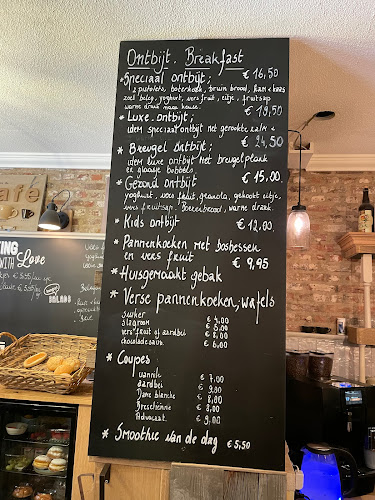 Ontbijt. Breakfast
* Speciaal ontbijt; € 16,50
2 pistolets, boterkoek, bruin brood, ham & kaas
zoet beleg, yoghurt, vers fruit, eitje, fruitsap
warme drank naar keuze.
€ 19,50
* Luxe ontbijt;
idem speciaal ontbijt met gerookte zalm &
€ 24,50
* Breugel ontbijt;
idem luxe ontbijt met breugelplank
en glaasje bubbels
€ 15.00.
* Gezond ontbijt
yoghurt, vers fruit, granola, gekookt eitje,
vers fruitsap. Boerenbrood, warme drank.
* Kids ontbijt € 12.00.
* Pannenkoeken met bosbessen
en vers fruit € 9,95
* Huisgemaakt gebak
* Verse pannenkoeken; wafels
suiker € 4.00
slagroom € 5.00
vers fruit of aardbei € 8.00
chocoladesaus € 6.00
* Coupes
vannile € 7.00
aardbei € 9.00
Dame blanche € 8.00
Bresilienne € 8,00
Advocaat € 9,00
* Smoothie van de dag € 5,50
afe
KING
WITH Love
SALADS